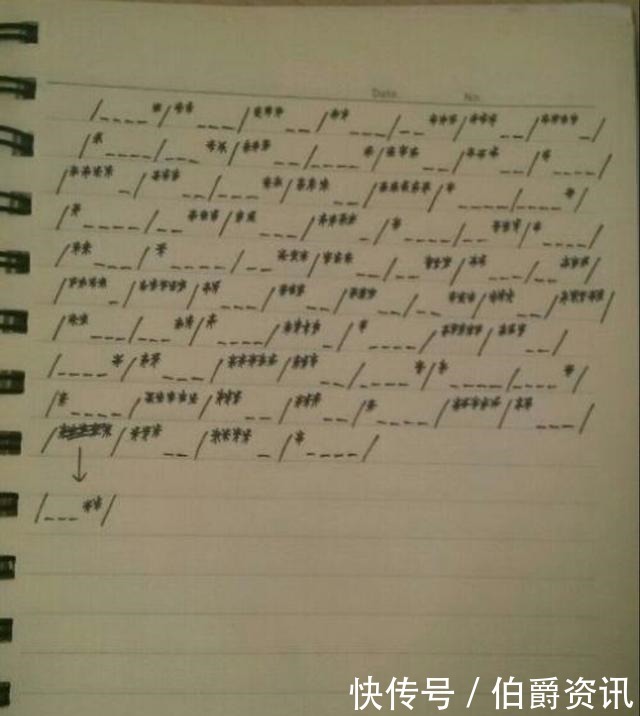 Date. No.
/____*/**___/***__/**___/__***/***__/****_/
/*____/___**/***__/____*/***__/***__/*____/
/****_/***__/___**/***__/*****/*____/____*/
/*____/__***/**___/****_/*____/__***/*____/
/**___/*____/__***/***__/__***/**___/__***/
/****_/*****/**___/***__/***__/__***/***__/*****/
/**___/___**/*____/****_/*____/*****/***__/
/____*/**___/*****/***__/____*/*____/____*/
/*____/*****/***__/***__/*____/*****/**___/
/*****/***__/****_/*____/
/___**/
快传号 / 伯爵资讯